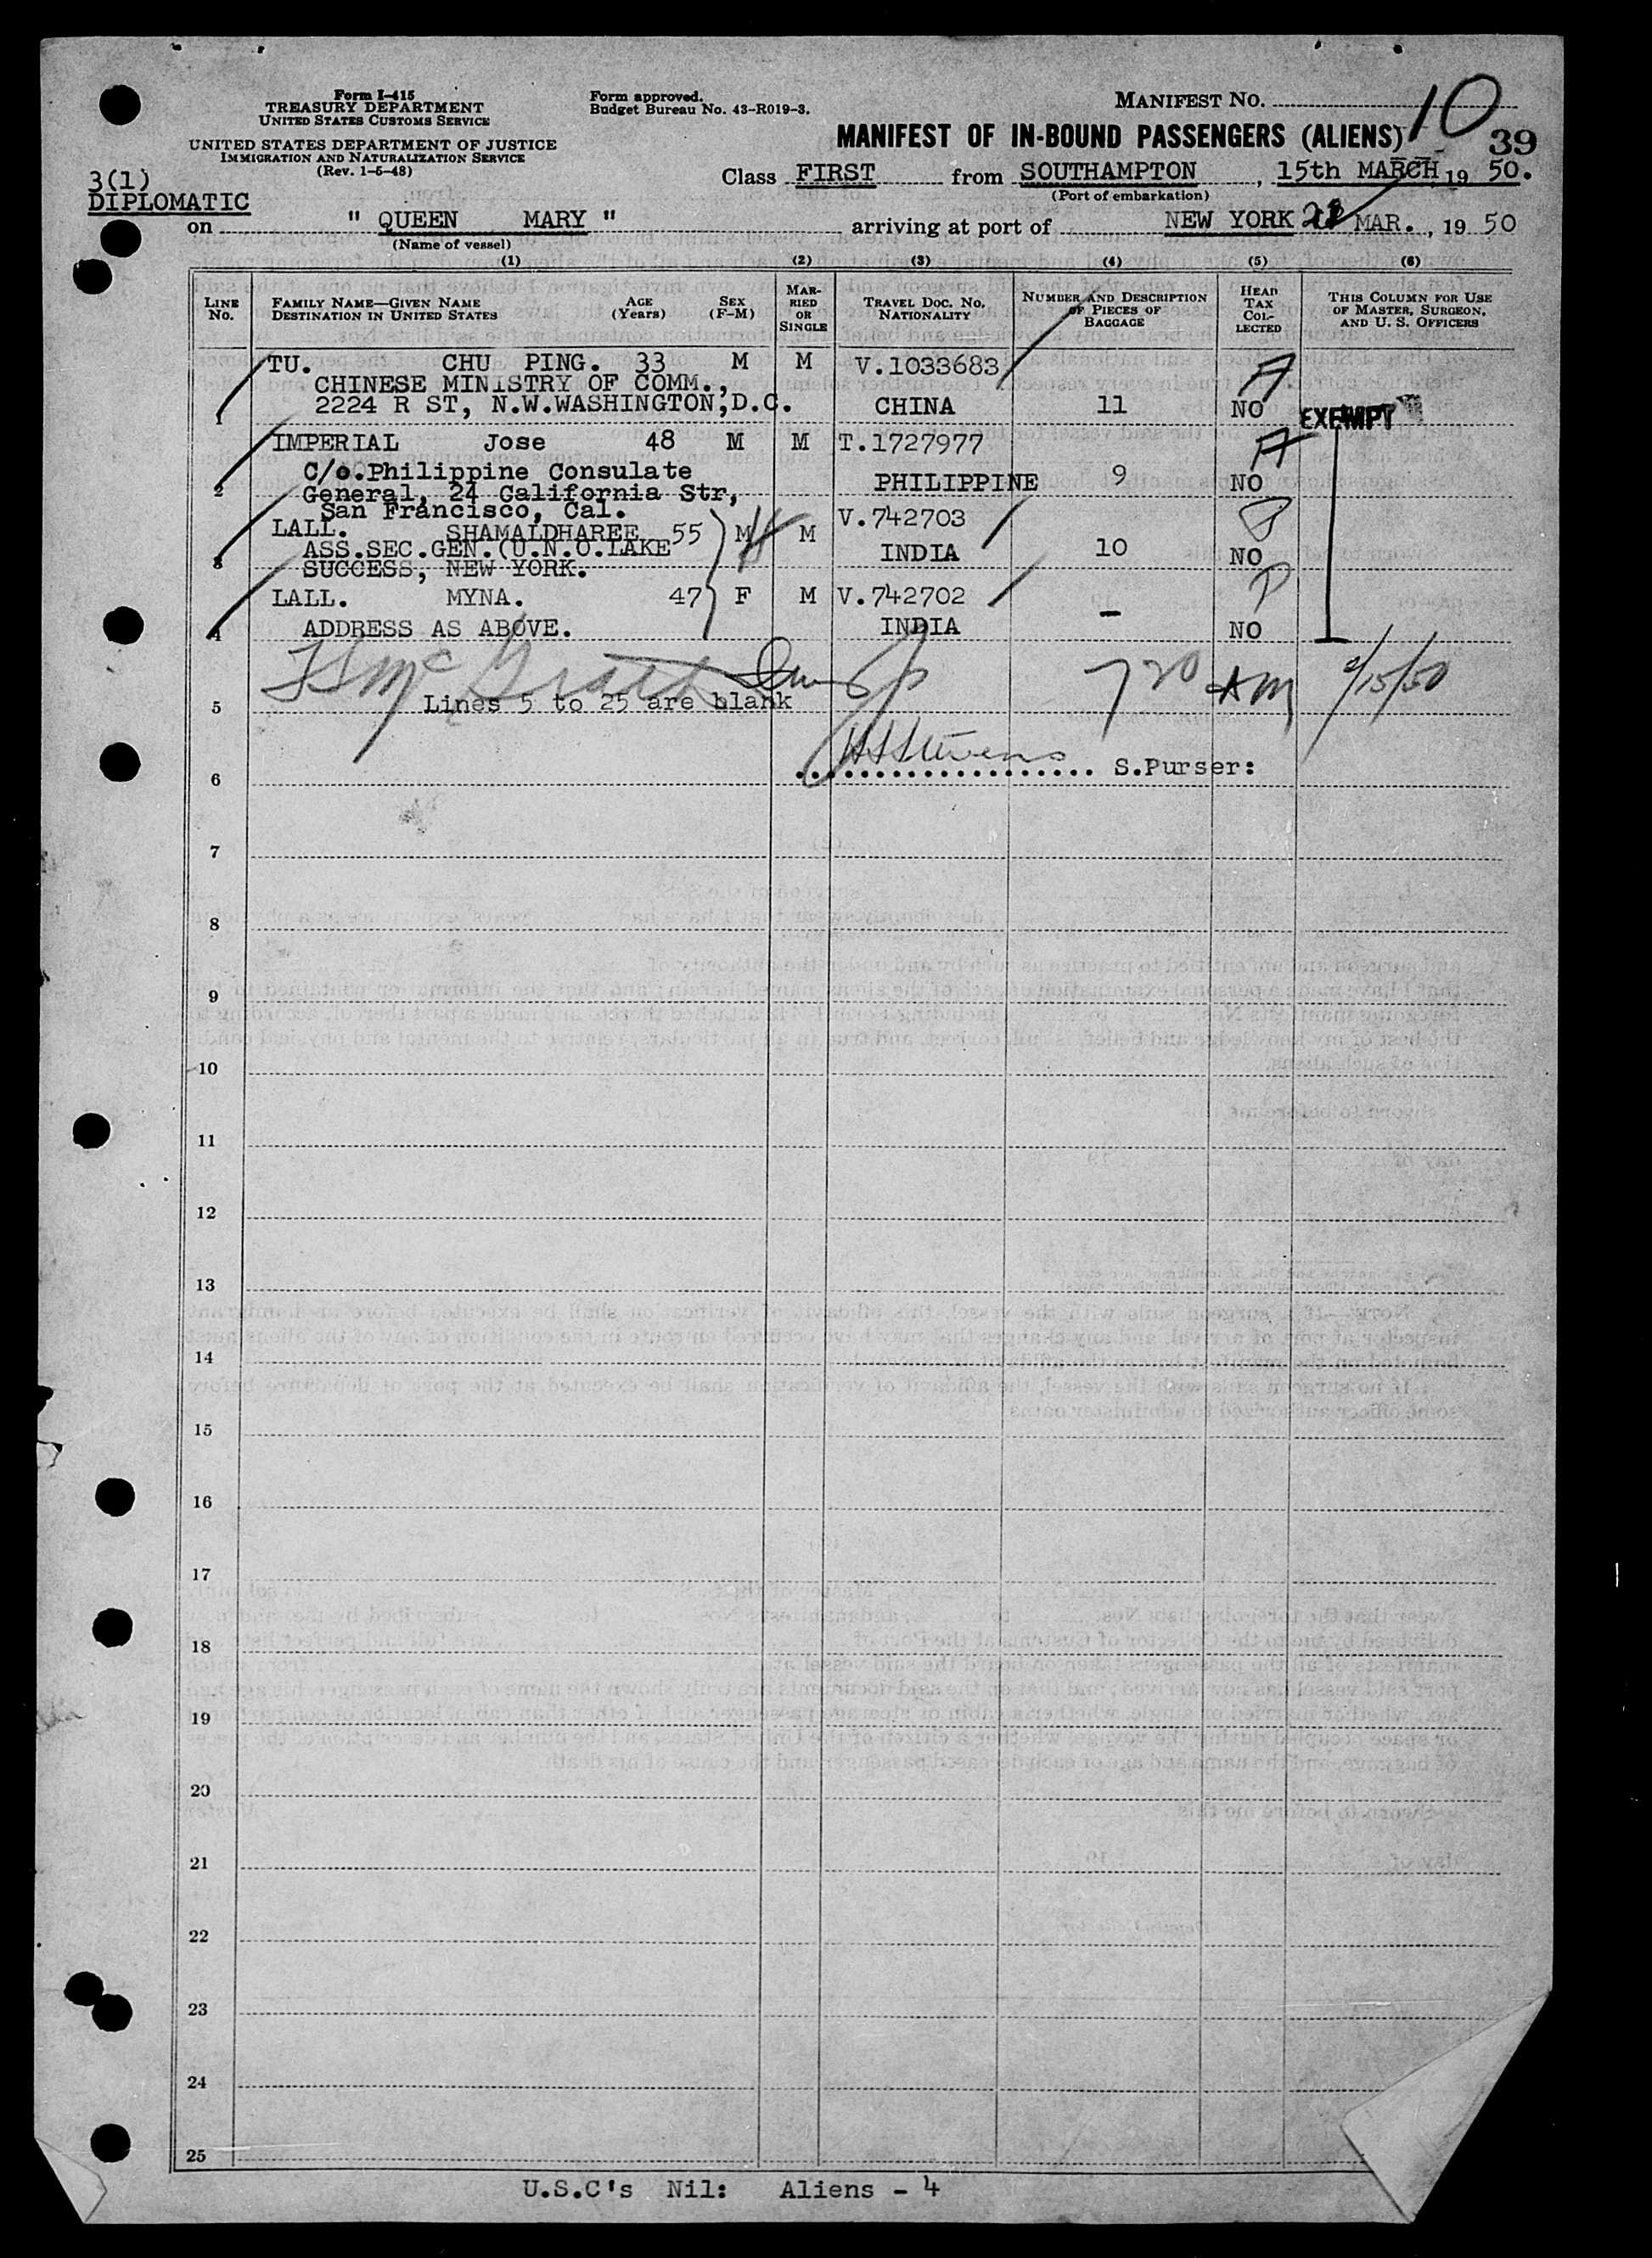 Form I-415
TREASURY DEPARTMENT
UNITED STATES CUSTOMS SERVICE
UNITED STATES DEPARTMENT OF JUSTICE
IMMIGRATION AND NATURALIZATION SERVICE
(Rev. 1-5-48)
Form approved.
Budget Bureau No. 43-R019-3.
MANIFEST No. 10
MANIFEST OF IN-BOUND PASSENGERS (ALIENS) 39
3(1)
DIPLOMATIC
Class FIRST from SOUTHAMPTON, 15th MARCH, 19 50.
(Port of embarkation)
on " QUEEN MARY " arriving at port of NEW YORK MAR., 19 50
(Name of vessel)
(1) (2) (3) (4) (5) (6)
LINE No. FAMILY NAME—GIVEN NAME DESTINATION IN UNITED STATES AGE (Years) SEX (F-M) MARRIED OR SINGLE TRAVEL DOC. NO. NATIONALITY NUMBER AND DESCRIPTION OF PIECES OF BAGGAGE HEAD TAX COLLECTED THIS COLUMN FOR USE OF MASTER, SURGEON, AND U. S. OFFICERS
TU. CHU PING. 33 M M V.1033683
CHINESE MINISTRY OF COMM.,
1 2224 R ST, N.W.WASHINGTON,D.C. CHINA 11 NO EXEMPT
IMPERIAL Jose 48 M M T.1727977
C/o.Philippine Consulate
2 General, 24 California Str, PHILIPPINE 9 NO
San Francisco, Cal.
LALL. SHAMALDHAREE 55 M M V.742703
ASS.SEC.GEN.(U.N.O.LAKE INDIA 10 NO
3 SUCCESS, NEW YORK.
LALL. MYNA. 47 F M V.742702
4 ADDRESS AS ABOVE. INDIA — NO
7 20 AM
5 Lines 5 to 25 are blank
6 S.Purser:
7
8
9
10
11
12
13
14
15
16
17
18
19
20
21
22
23
24
25
U.S.C's Nil: Aliens - 4